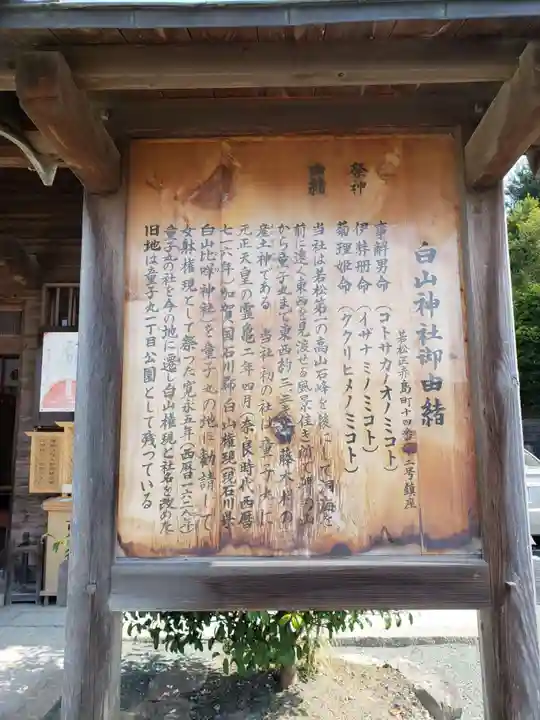 白山神社御由緒
若松区赤島町十四番 二号鎮座
祭神
事解男命（コトサカノオノミコト）
伊弉冊命（イザナミノミコト）
菊理姫命（ククリヒメノミコト）
由緒
当社は若松第一の高山石峰を後にして洞海を
前に遠く東西を見渡せる風景佳き
から童子丸まで東西約三 藤木村の
産土神である 当社初の社は童子丸に
元正天皇の霊亀二年四月（奈良時代西暦
七一六年）加賀国石川郡白山権現（現石川県
白山比咩神社）を童子丸の地に勧請して
女躰権現として祭つた寛永五年（西暦一六二八年）
童子丸の社を今の地に遷し白山権現と社名を改めた
旧地は童子丸一丁目公園として残つている